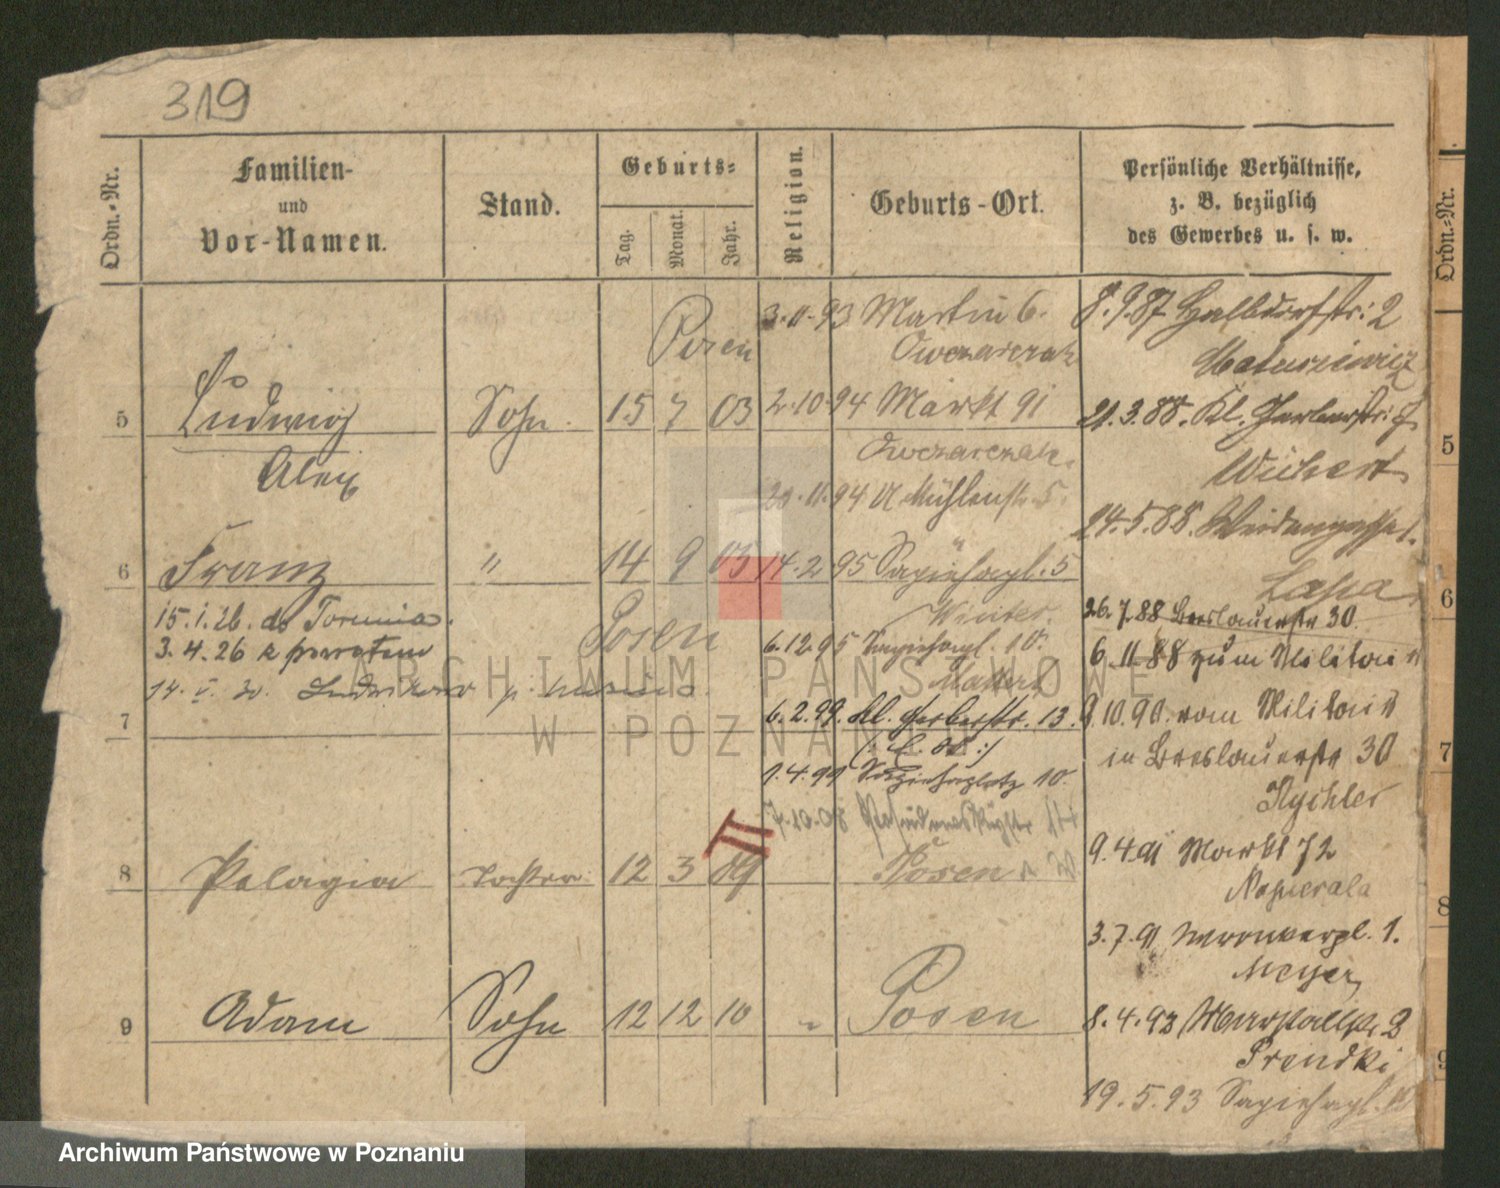 319
Ordn.-Nr.
Familien-
und
Vor-Namen.
Stand.
Geburts-
Tag.
Monat.
Jahr.
Religion.
Geburts-Ort.
Persönliche Verhältnisse,
z. B. bezüglich
des Gewerbes u. s. w.
Ordn.-Nr.
3.11.93 Martin 6.
8.9.87 Halbdorfstr. 2
Posen
Owczarczak
Matuszewicz
5 Ludwig Sohn. 15 7 03
2.10.94 Markt 91
21.3.88. Kl. Gerberstr. 7
Alex
Owczarczak
Wichert
5
20.11.94 Mühlenstr. 5.
24.5.88. Weidengasse 1.
6 Franz " 14 9 05
14.2.95 Sapiehapl. 5
Lapa
6
15.1.26. do Torunia.
Posen
Winter.
26.7.88 Breslauerstr 30.
3.4.26 z powrotem
6.12.95 Sapiehapl. 10.
6.11.88 zum Militair
14. V. 30.
Mattert
6.2.99. Kl. Gerberstr. 13.
9.10.90. vom Militair
7
in Breslauerstr 30
7
1.4.99 Sapiehaplatz 10.
Rychler
7.10.08
II
9.4.91 Markt 72
8 Pelagia Tochter 12 3 09 Posen
Napierala
8
3.7.91 1.
Meyer
9 Adam Sohn 12 12 10 " Posen
8.4.93
Prendki
9
19.5.93 Sapiehapl.
ARCHIWUM PAŃSTWOWE
W POZNANIU
Archiwum Państwowe w Poznaniu